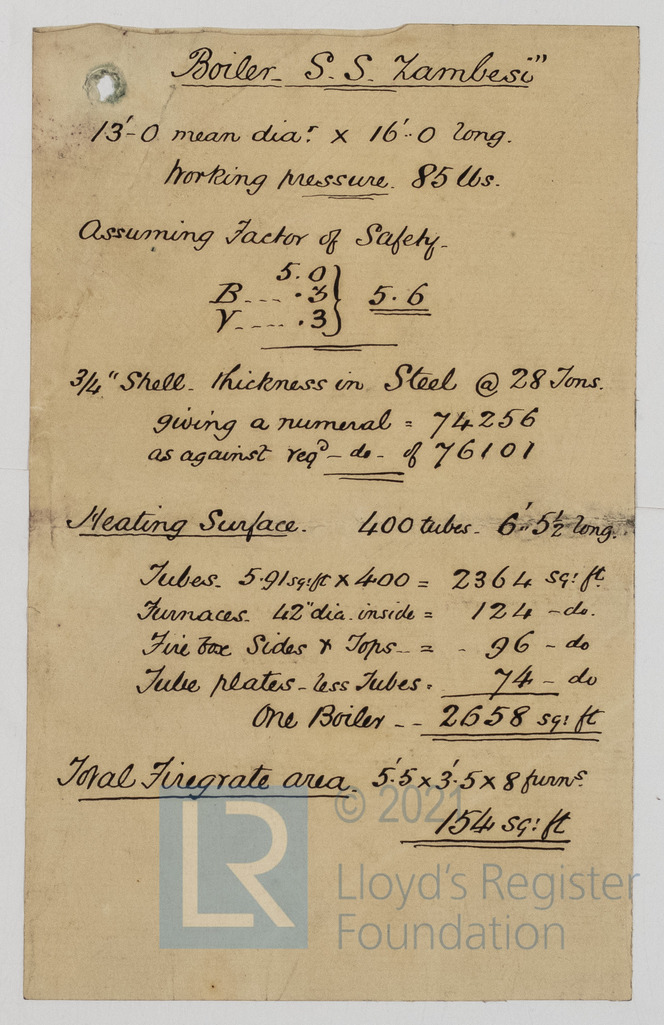 Boiler - S.S. Zambesi"
13'-0 mean diar. x 16'-0 long.
Working pressure. 85 lbs.
Assuming Factor of Safety -
5.0
B --- .3 } 5.6
V ---- .3
3/4" Shell - thickness in Steel @ 28 Tons.
giving a numeral = 74256
as against reqd - do - of 76101
Heating Surface. 400 tubes - 6'-5½ long.
Tubes - 5.91 sq: ft x 400 = 2364 sq: ft.
Furnaces. 42" dia. inside = 124 - do.
Fire box Sides & Tops -- = - 96 - do
Tube plates - less Tubes = 74 - do
One Boiler -- 2658 sq: ft
Total Firegrate area. 5'.5 x 3'.5 x 8 furns.
154 sq: ft
© 2021
LR
Lloyd's Register
Foundation